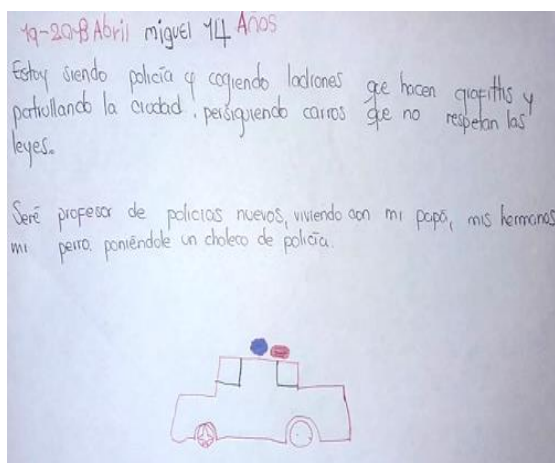 19-20-8 Abril miguel 14 Años
Estoy siendo policía y cogiendo ladrones que hacen grafiths y
patrollando la ciudad, persiguiendo carros que no respetan las
leyes.
Seré profesor de policias nuevos, viviendo con mi papá, mis hermanos
mi perro. poniéndole un choleco de policía.